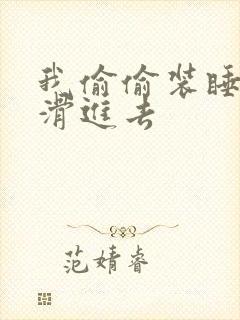 我偷偷装睡
滑进去
范婧睿